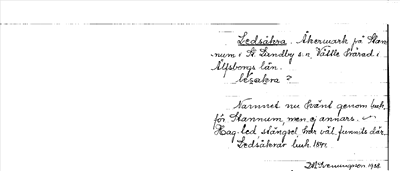 Ledsåkra. Åkermark på Stan-
num i St. Lundby s:n, Vättle härad i
Älfsborgs län.
Namnet nu känt genom
för Stannum, men ej annars.
Hag led stängsel har väl funnits där.
Ledsåkrar 1841.